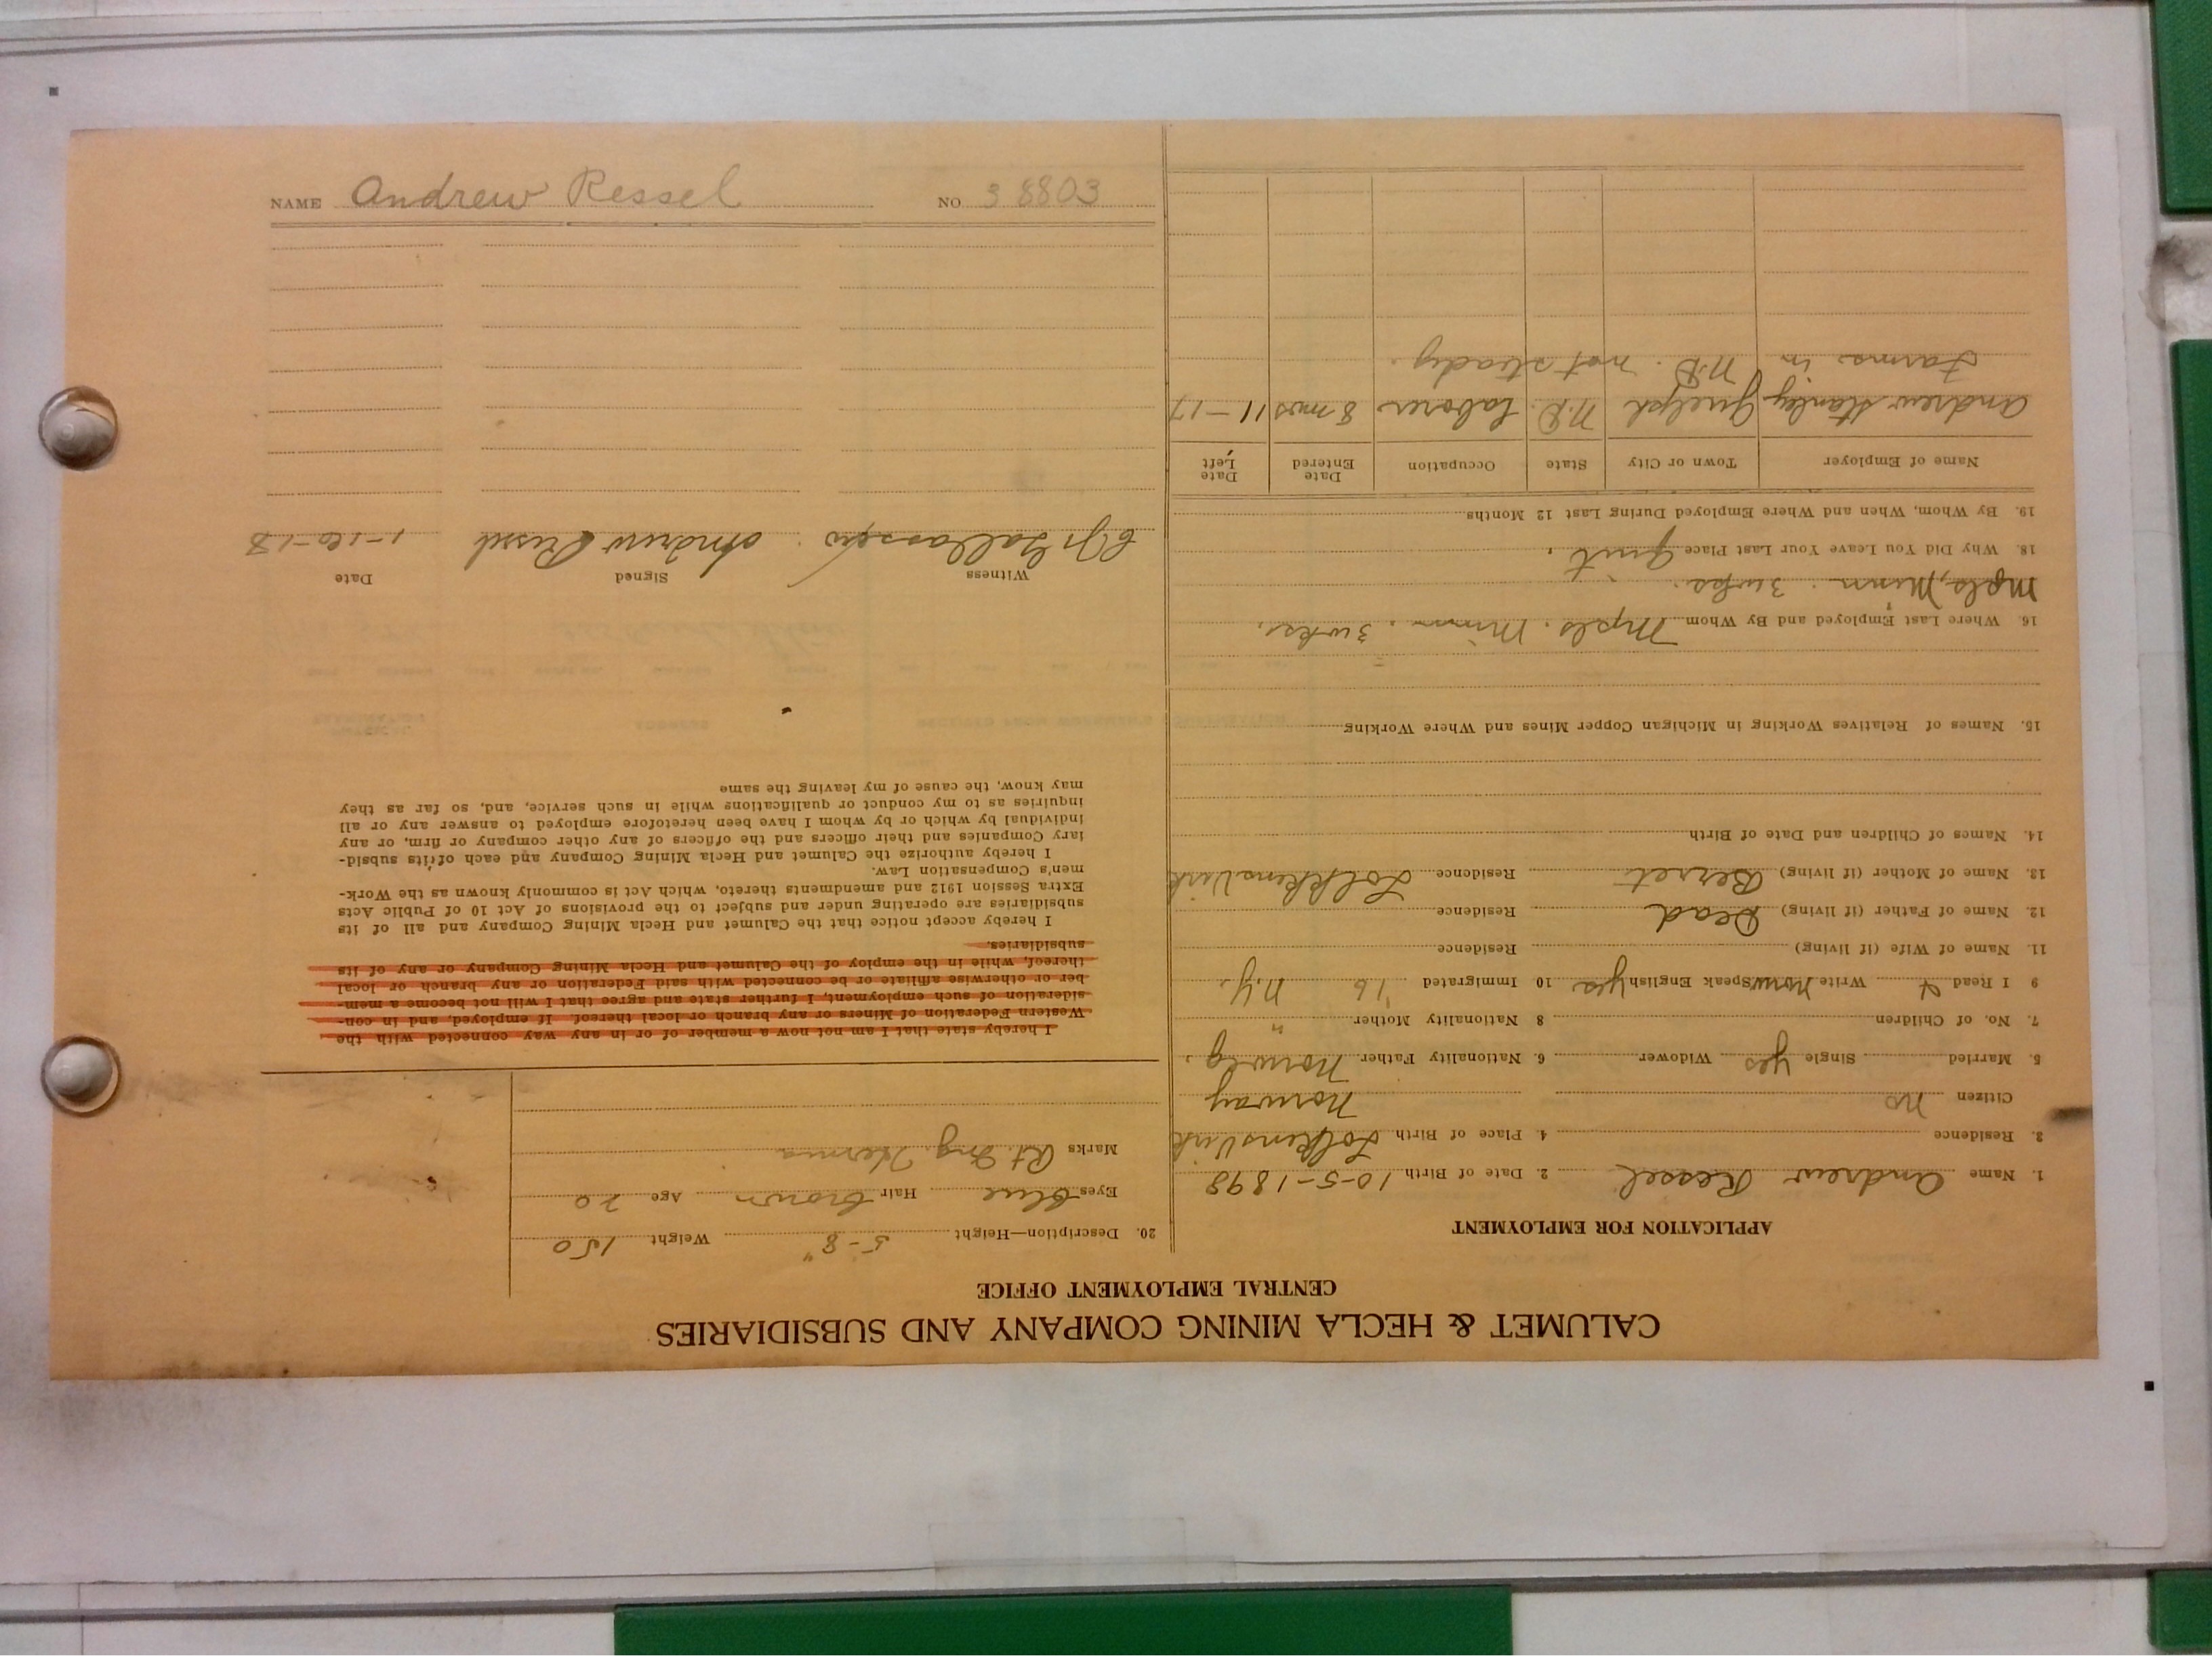 CALUMET & HECLA MINING COMPANY AND SUBSIDIARIES
CENTRAL EMPLOYMENT OFFICE
APPLICATION FOR EMPLOYMENT
1. Name Andrew Ressel 2. Date of Birth 10-5-1898
3. Residence 4. Place of Birth
Citizen No Norway
5. Married Single yes Widower 6. Nationality Father Norweg.
7. No. of Children 8 Nationality Mother "
9 I Read Write Norw Speak English yes 10 Immigrated '16 N.Y.
11. Name of Wife (if living) Residence
12. Name of Father (if living) Dead Residence
13. Name of Mother (if living) Beret Residence
14. Names of Children and Date of Birth
15. Names of Relatives Working in Michigan Copper Mines and Where Working
16. Where Last Employed and By Whom Mpls. Minn. 3 wks.
Mpls, Minn. 3 wks.
18. Why Did You Leave Your Last Place Quit
19. By Whom, When and Where Employed During Last 12 Months
Name of Employer Town or City State Occupation Date Entered Date Left
Andrew Stanley Guelph N.D. Laborer 8 mos 11-17
Farms in N.D. not steady.
20. Description—Height 5-8" Weight 150
Eyes Blue Hair brown Age 20
Marks Rt. Ing. Hernia
I hereby state that I am not now a member of or in any way connected with the
Western Federation of Miners or any branch or local thereof. If employed, and in con-
sideration of such employment, I further state and agree that I will not become a mem-
ber or otherwise affiliate or be connected with said Federation or any branch or local
thereof, while in the employ of the Calumet and Hecla Mining Company or any of its
subsidiaries.
I hereby accept notice that the Calumet and Hecla Mining Company and all of its
subsidiaries are operating under and subject to the provisions of Act 10 of Public Acts
Extra Session 1912 and amendments thereto, which Act is commonly known as the Work-
men's Compensation Law.
I hereby authorize the Calumet and Hecla Mining Company and each of its subsid-
iary Companies and their officers and the officers of any other company or firm, or any
individual by which or by whom I have been heretofore employed to answer any or all
inquiries as to my conduct or qualifications while in such service, and, so far as they
may know, the cause of my leaving the same
Witness Signed Date
Andrew Ressel
NAME Andrew Ressel NO. 38803